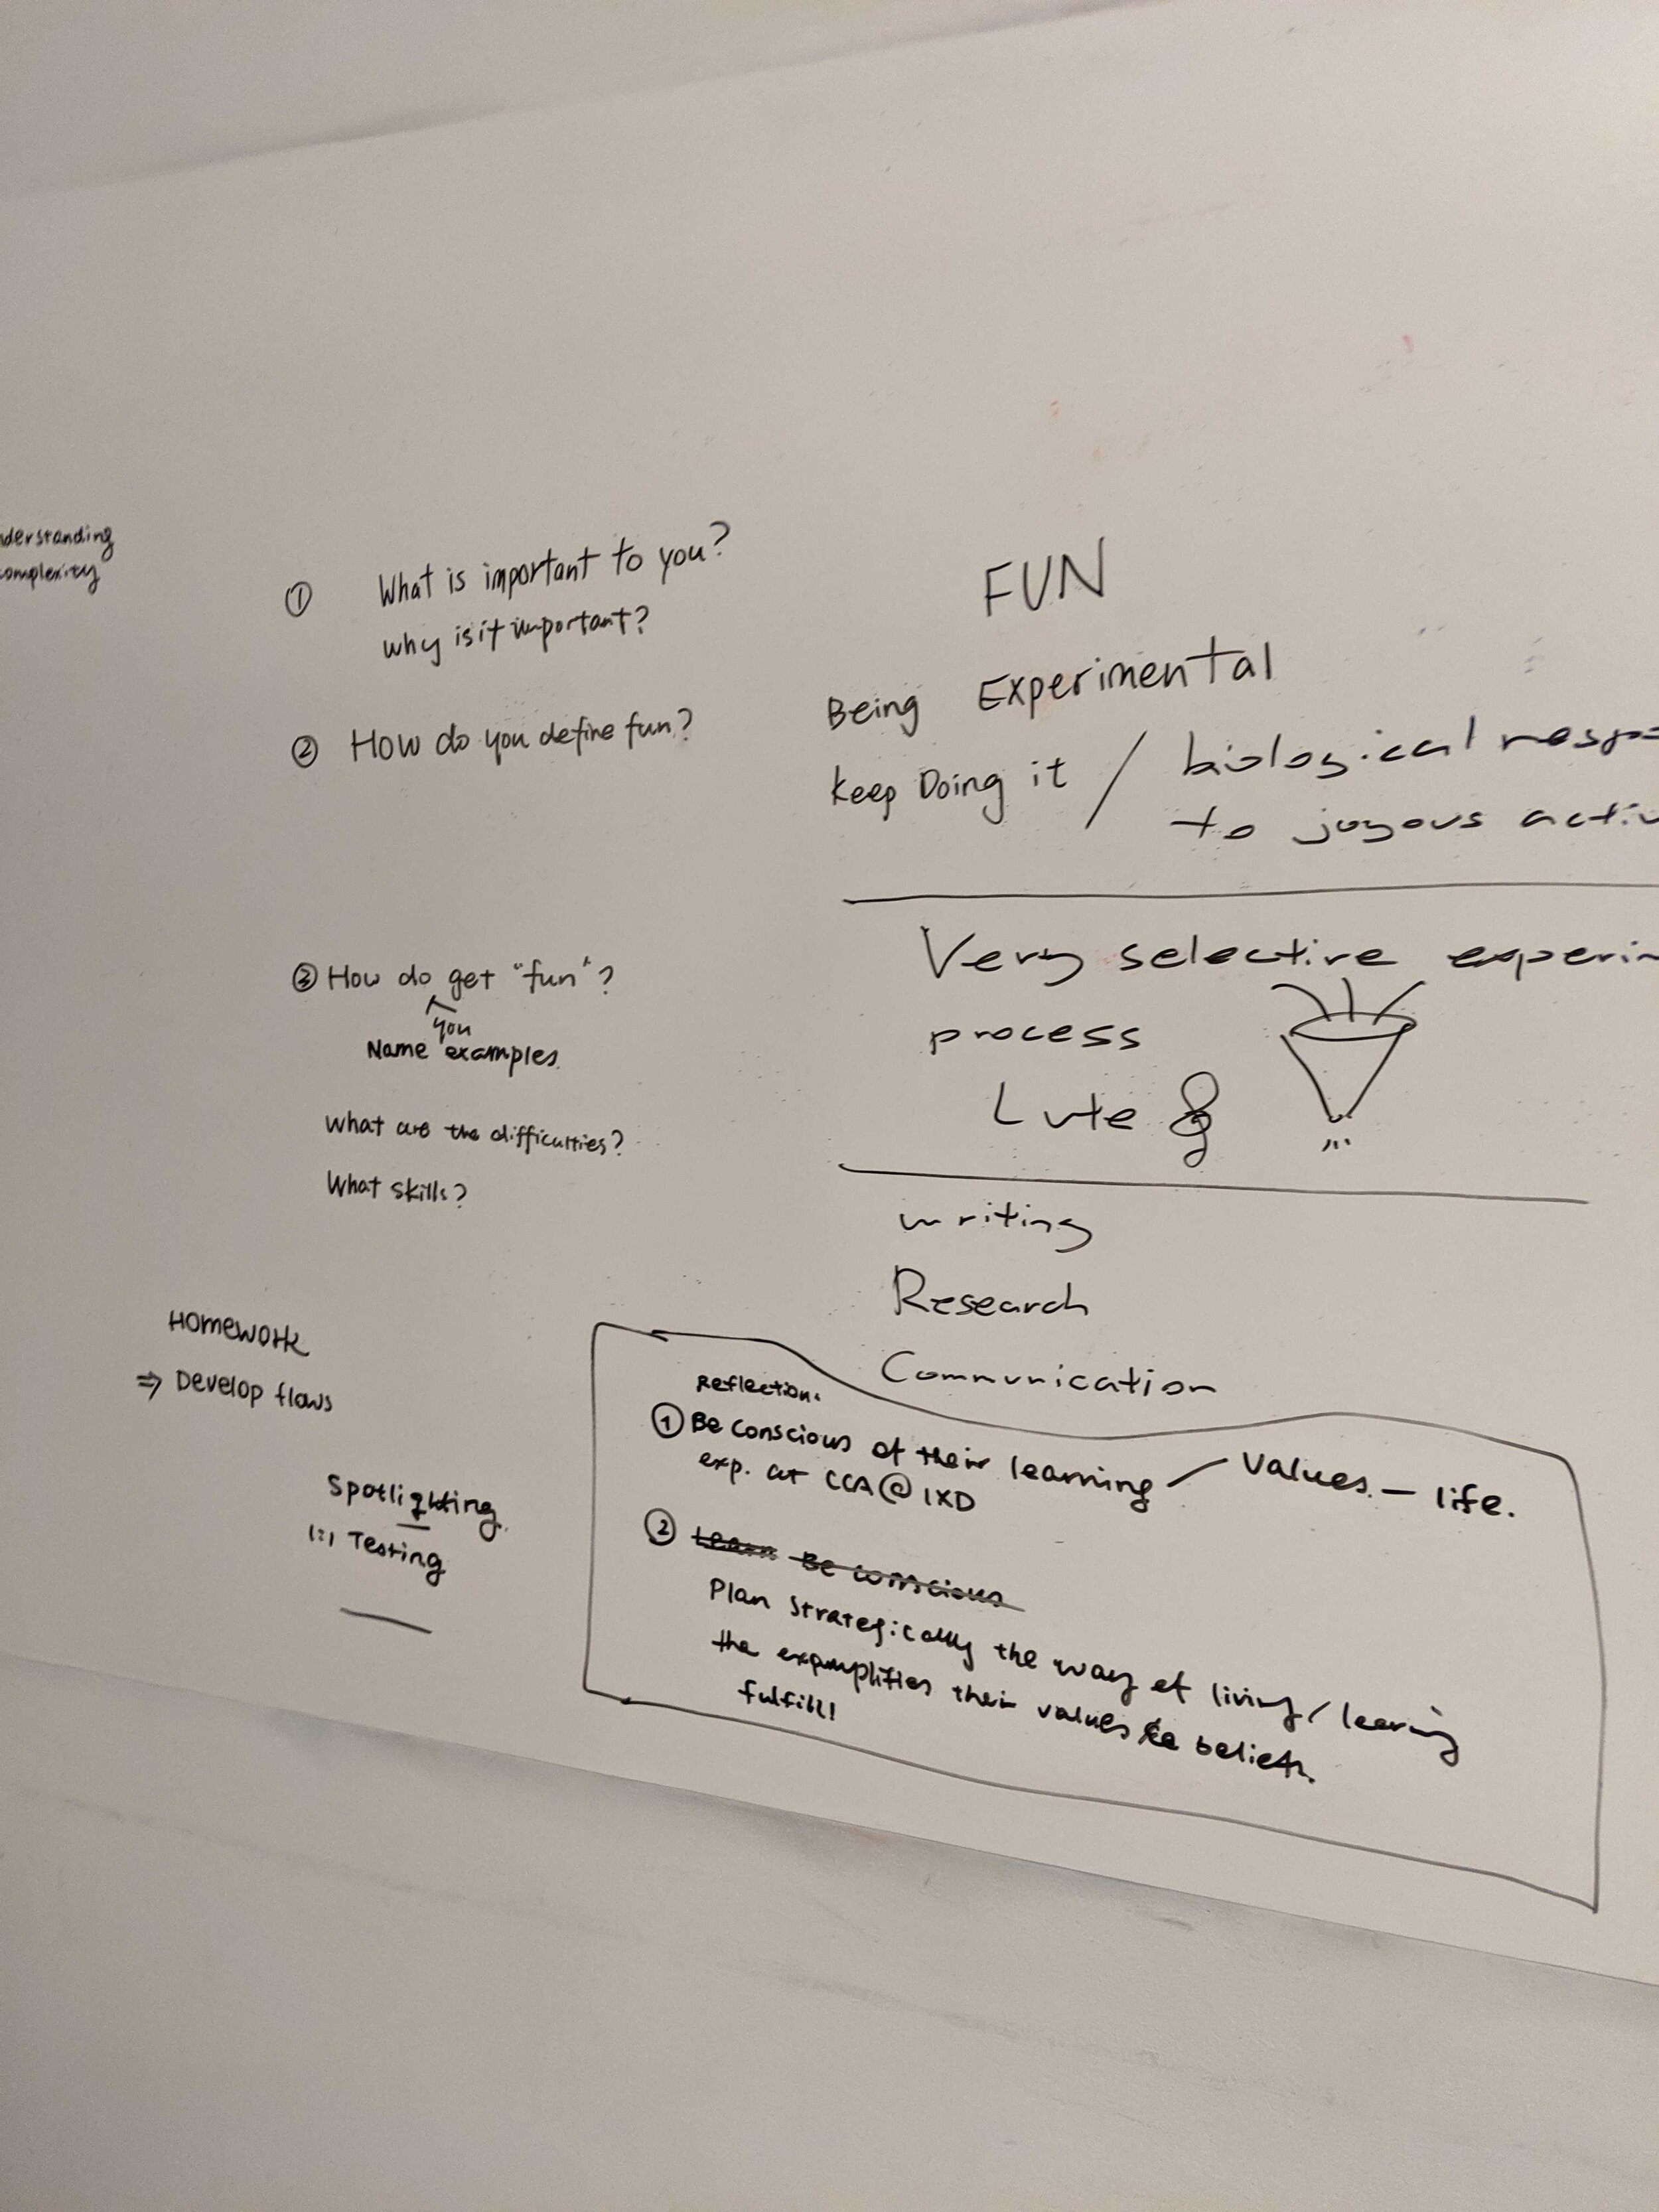 understanding
complexity
① What is important to you?
why is it important?
② How do you define fun?
③ How do get "fun"?
you
Name examples.
What are the difficulties?
What skills?
Homework
⇒ Develop flows
Spotlighting
1:1 Testing
FUN
Being Experimental
Keep Doing it / biological respo
to joyous activ
Very selective experim
process
Lute &
writing
Research
Communication
Reflection.
① Be conscious of their learning / Values. — life.
exp. at CCA@IXD
② Learn Be conscious
Plan strategically the way of living / learning
the exemplifies their values & beliefs.
fulfill!